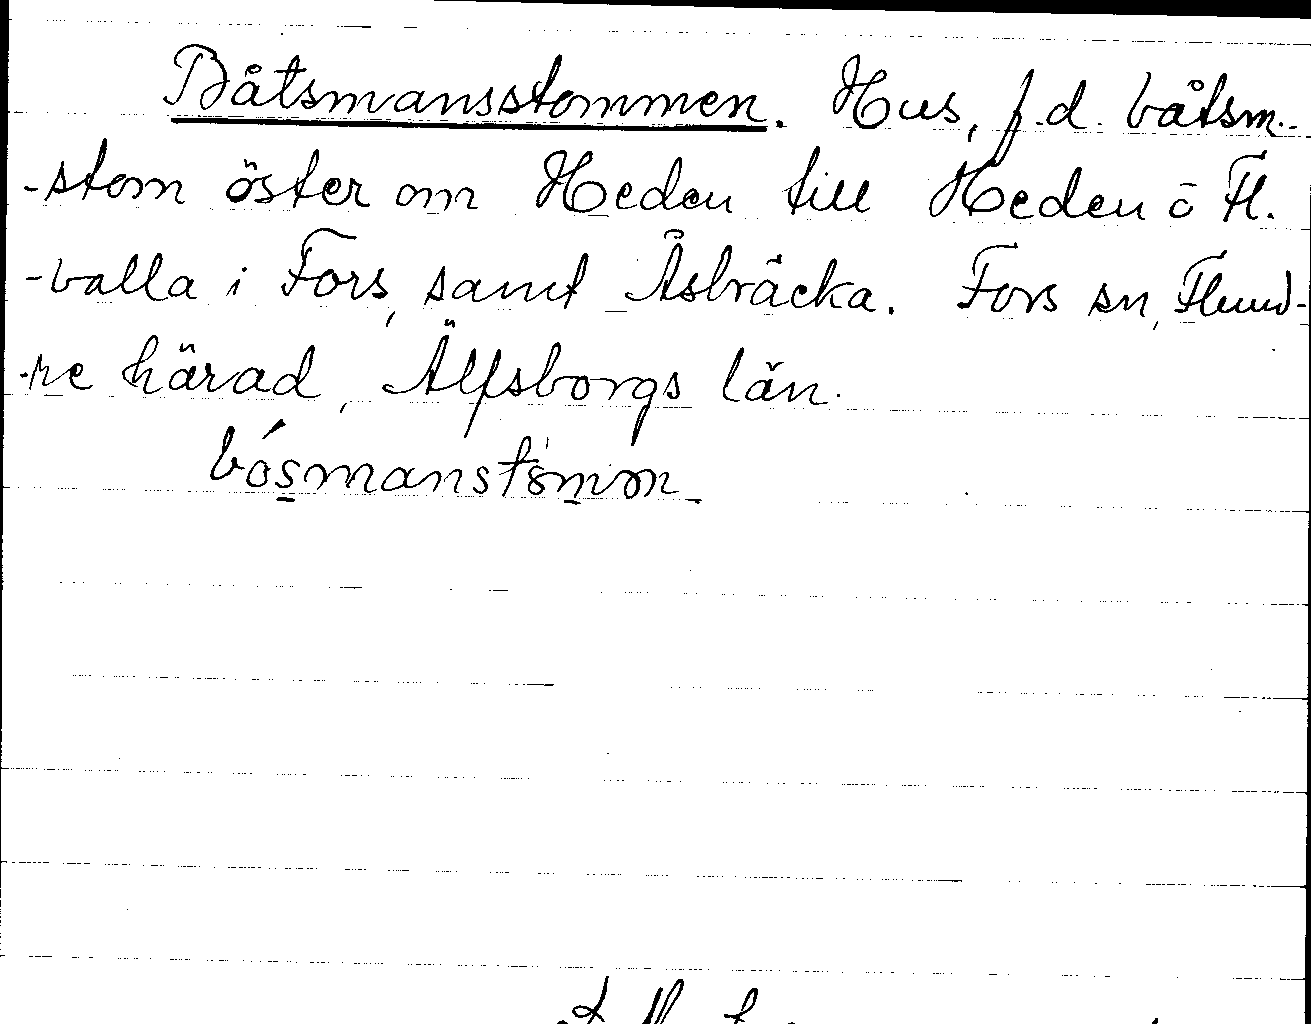 Båtsmansstommen. Hus, f.d. båtsm.-
-stom öster om Heden till Heden o Fl.
-valla i Fors, samt Åsbräcka. Fors sn, Flund-
-re härad, Älfsborgs län.
bósmanstömm